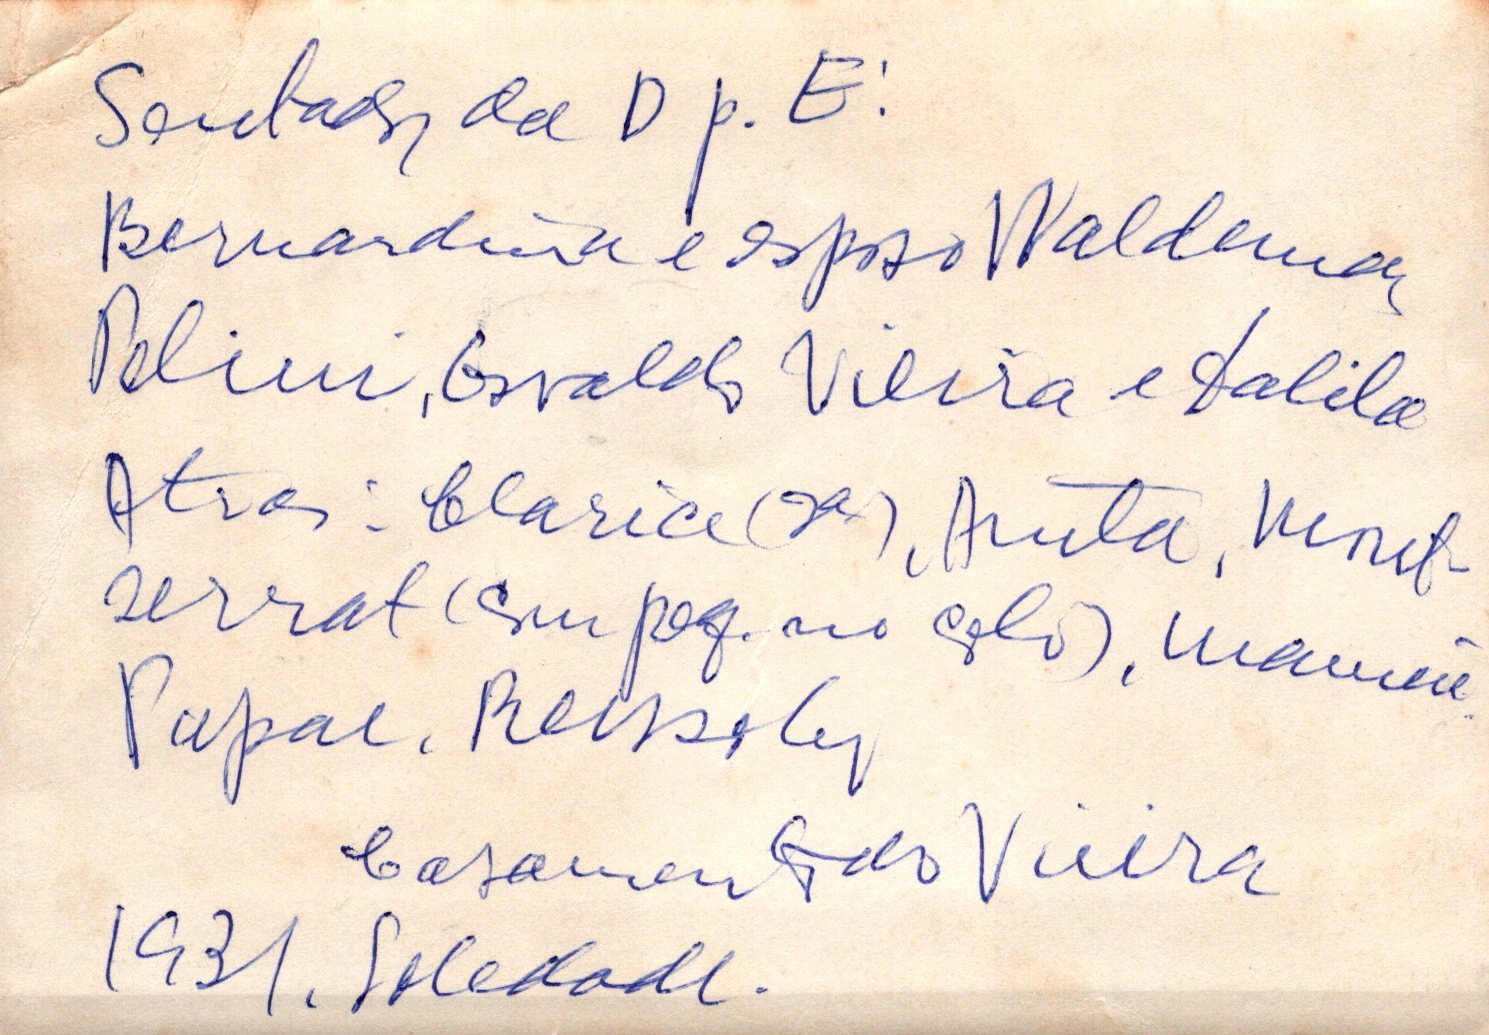 Sentados da D p. E:
Bernardina e esposo Waldemar
Pelini, Osvaldo Vieira e Dalila
Atras: Clarice (sa), Anita, Mont-
serrat (com peq. no colo), mamãe
Papae,
Casamento do Vieira
1931, Soledade.